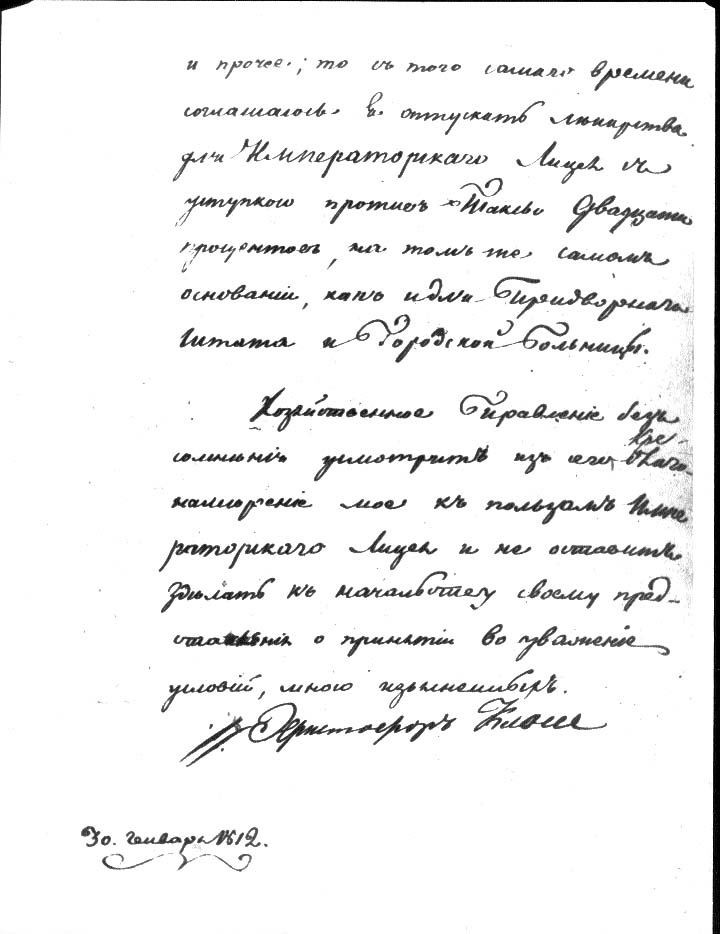 и прочее; то съ того самаго времени
соглашаюсь и отпускать лѣкарства
для Императорскаго Лицея съ
уступкою противъ Таксы Двадцати
процентовъ, на томъ же самомъ
основаніи, какъ и для Придворнаго
Штата и Городской Больницы.
Хозяйственное Правленіе безъ
сомнѣнія усмотритъ изъ сего
намѣреніе мое къ пользамъ Импе
раторскаго Лицея и не оставитъ
здѣлать къ начальству своему пред-
ставленія о принятіи во уваженіе
условій, мною изъясненныхъ.
Христофоръ
30. Генваря 1812.